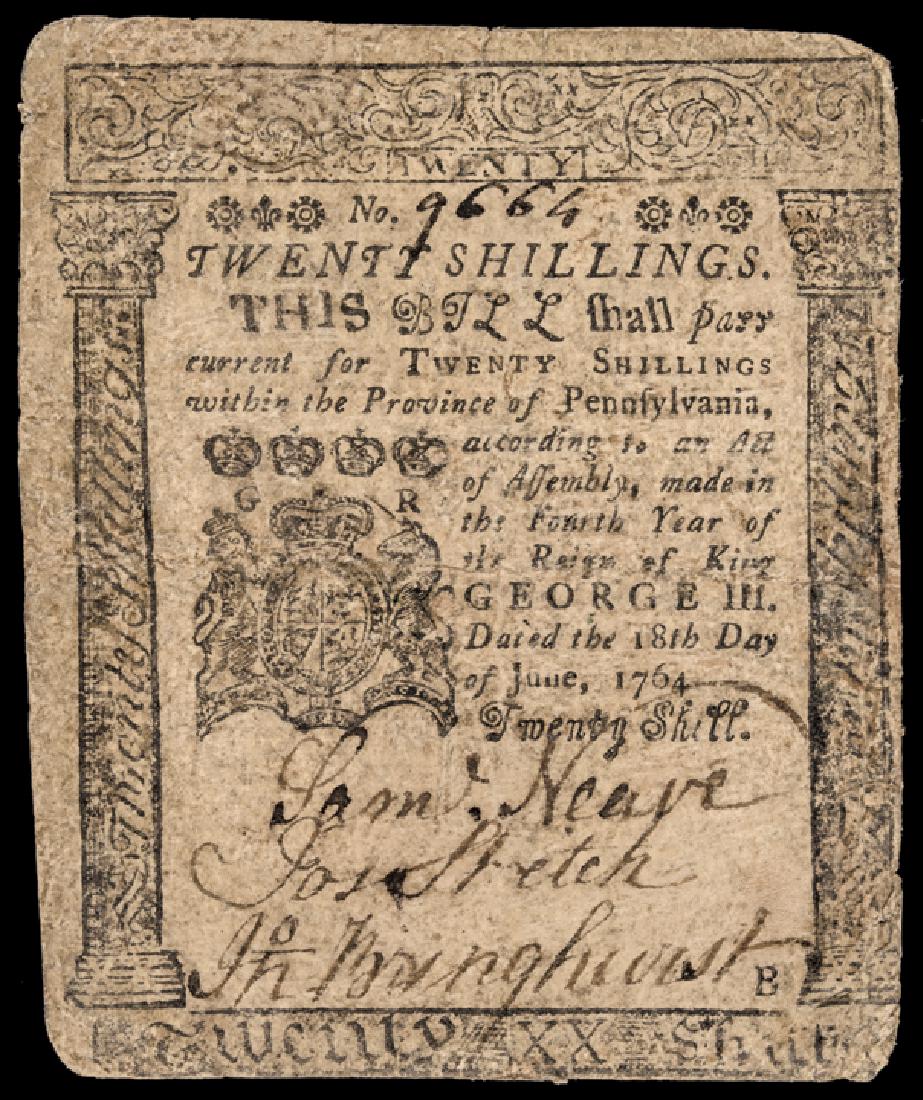 TWENTY
No. 9664
TWENTY SHILLINGS.
THIS BILL ſhall paſs
current for TWENTY SHILLINGS
within the Province of Pennſylvania,
according to an Act
of Aſſembly, made in
the Fourth Year of
the Reign of King
GEORGE III.
Dated the 18th Day
of June, 1764
Twenty Shill.
G R
Saml. Neave
Jos. Stretch
Jno Bringhurst
B
Twenty Shillings
Twenty XX Shill